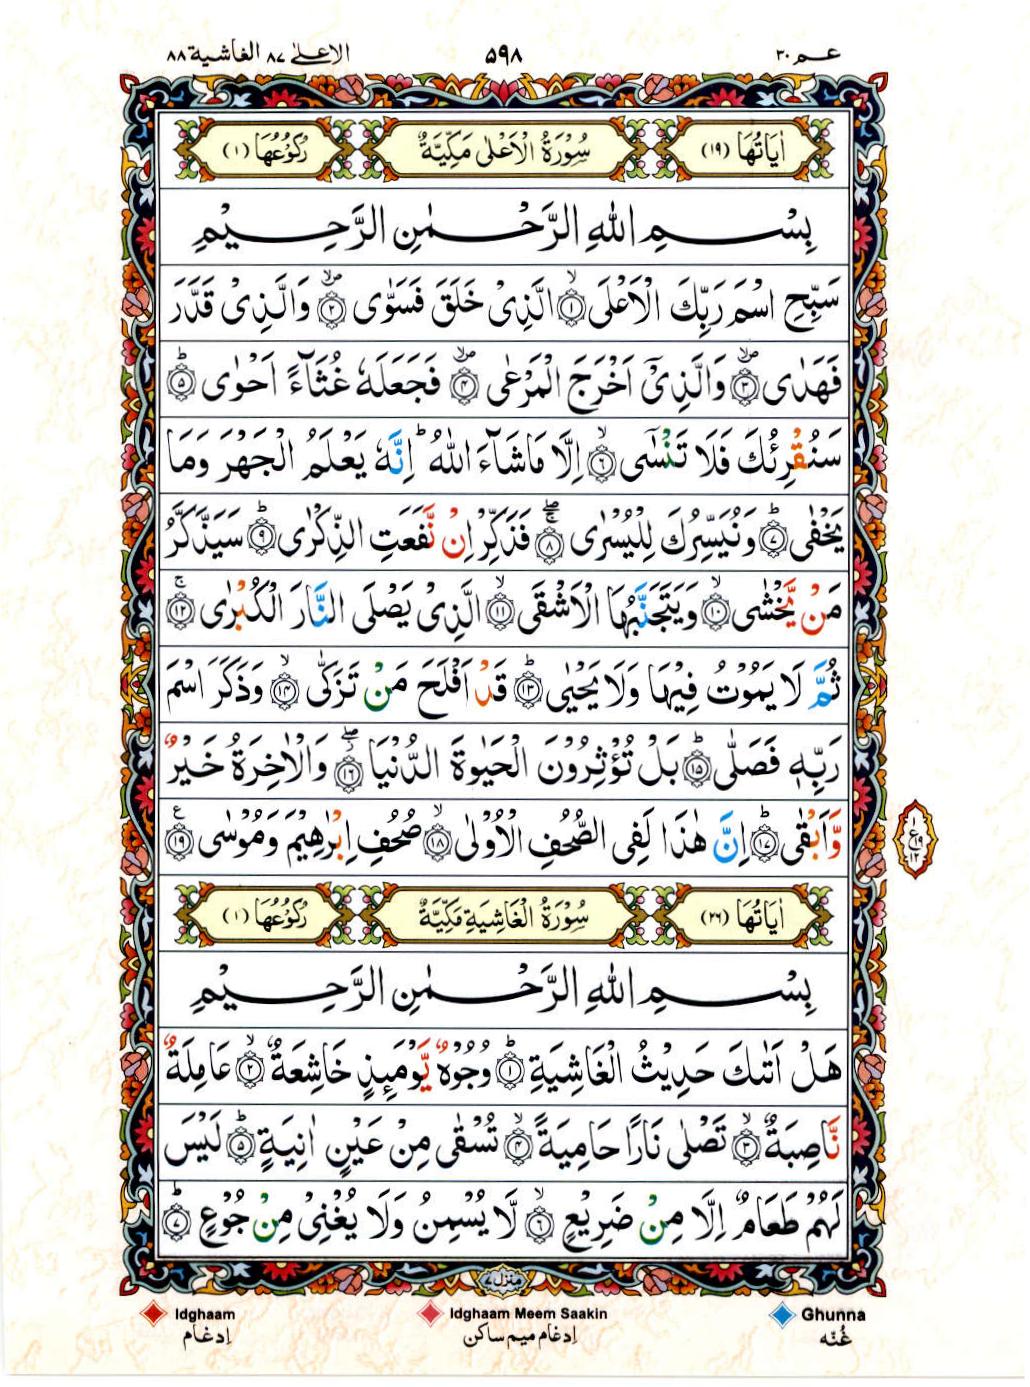 عـم ٣٠ ٥٩٨ الاعلىٰ ٨٧ الغاشية ٨٨
اٰيَاتُهَا (١٩) سُوْرَةُ الْاَعْلٰى مَكِّيَّةٌ رُكُوْعُهَا (١)
بِسْمِ اللهِ الرَّحْمٰنِ الرَّحِيْمِ
سَبِّحِ اسْمَ رَبِّكَ الْاَعْلَى ۙ﴿١﴾ الَّذِيْ خَلَقَ فَسَوّٰى ۪ۙ﴿٢﴾ وَالَّذِيْ قَدَّرَ
فَهَدٰى ۪ۙ﴿٣﴾ وَالَّذِيْٓ اَخْرَجَ الْمَرْعٰى ۪ۙ﴿٤﴾ فَجَعَلَهٗ غُثَآءً اَحْوٰى ؕ﴿٥﴾
سَنُقْرِئُكَ فَلَا تَنْسٰٓى ۙ﴿٦﴾ اِلَّا مَا شَآءَ اللهُ ؕ اِنَّهٗ يَعْلَمُ الْجَهْرَ وَمَا
يَخْفٰى ؕ﴿٧﴾ وَنُيَسِّرُكَ لِلْيُسْرٰى ۚۖ﴿٨﴾ فَذَكِّرْ اِنْ نَّفَعَتِ الذِّكْرٰى ؕ﴿٩﴾ سَيَذَّكَّرُ
مَنْ يَّخْشٰى ۙ﴿١٠﴾ وَيَتَجَنَّبُهَا الْاَشْقَى ۙ﴿١١﴾ الَّذِيْ يَصْلَى النَّارَ الْكُبْرٰى ۚ﴿١٢﴾
ثُمَّ لَا يَمُوْتُ فِيْهَا وَلَا يَحْيٰى ؕ﴿١٣﴾ قَدْ اَفْلَحَ مَنْ تَزَكّٰى ۙ﴿١٤﴾ وَذَكَرَ اسْمَ
رَبِّهٖ فَصَلّٰى ؕ﴿١٥﴾ بَلْ تُؤْثِرُوْنَ الْحَيٰوةَ الدُّنْيَا ۖ﴿١٦﴾ وَالْاٰخِرَةُ خَيْرٌ
وَّاَبْقٰى ؕ﴿١٧﴾ اِنَّ هٰذَا لَفِى الصُّحُفِ الْاُوْلٰى ۙ﴿١٨﴾ صُحُفِ اِبْرٰهِيْمَ وَمُوْسٰى ﴿١٩﴾ ع
١ ع ١٩ ١٢
اٰيَاتُهَا (٢٦) سُوْرَةُ الْغَاشِيَةِ مَكِّيَّةٌ رُكُوْعُهَا (١)
بِسْمِ اللهِ الرَّحْمٰنِ الرَّحِيْمِ
هَلْ اَتٰىكَ حَدِيْثُ الْغَاشِيَةِ ؕ﴿١﴾ وُجُوْهٌ يَّوْمَىِٕذٍ خَاشِعَةٌ ۙ﴿٢﴾ عَامِلَةٌ
نَّاصِبَةٌ ۙ﴿٣﴾ تَصْلٰى نَارًا حَامِيَةً ۙ﴿٤﴾ تُسْقٰى مِنْ عَيْنٍ اٰنِيَةٍ ؕ﴿٥﴾ لَيْسَ
لَهُمْ طَعَامٌ اِلَّا مِنْ ضَرِيْعٍ ۙ﴿٦﴾ لَّا يُسْمِنُ وَلَا يُغْنِيْ مِنْ جُوْعٍ ؕ﴿٧﴾
منزل ٧
Idghaam Idghaam Meem Saakin Ghunna
اِدغام اِدغام ميم ساكن غُنّه